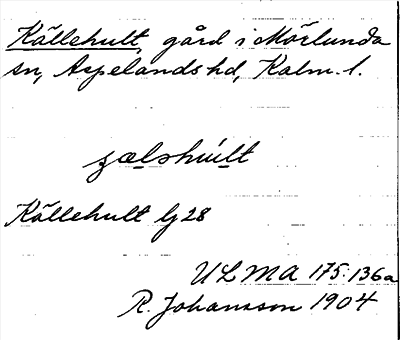 Källehult, gård i Mörlunda
sn, Aspelands hd, Kalm. l.
Källehult lj 28
ULMA 175:136a
R. Johansson 1904